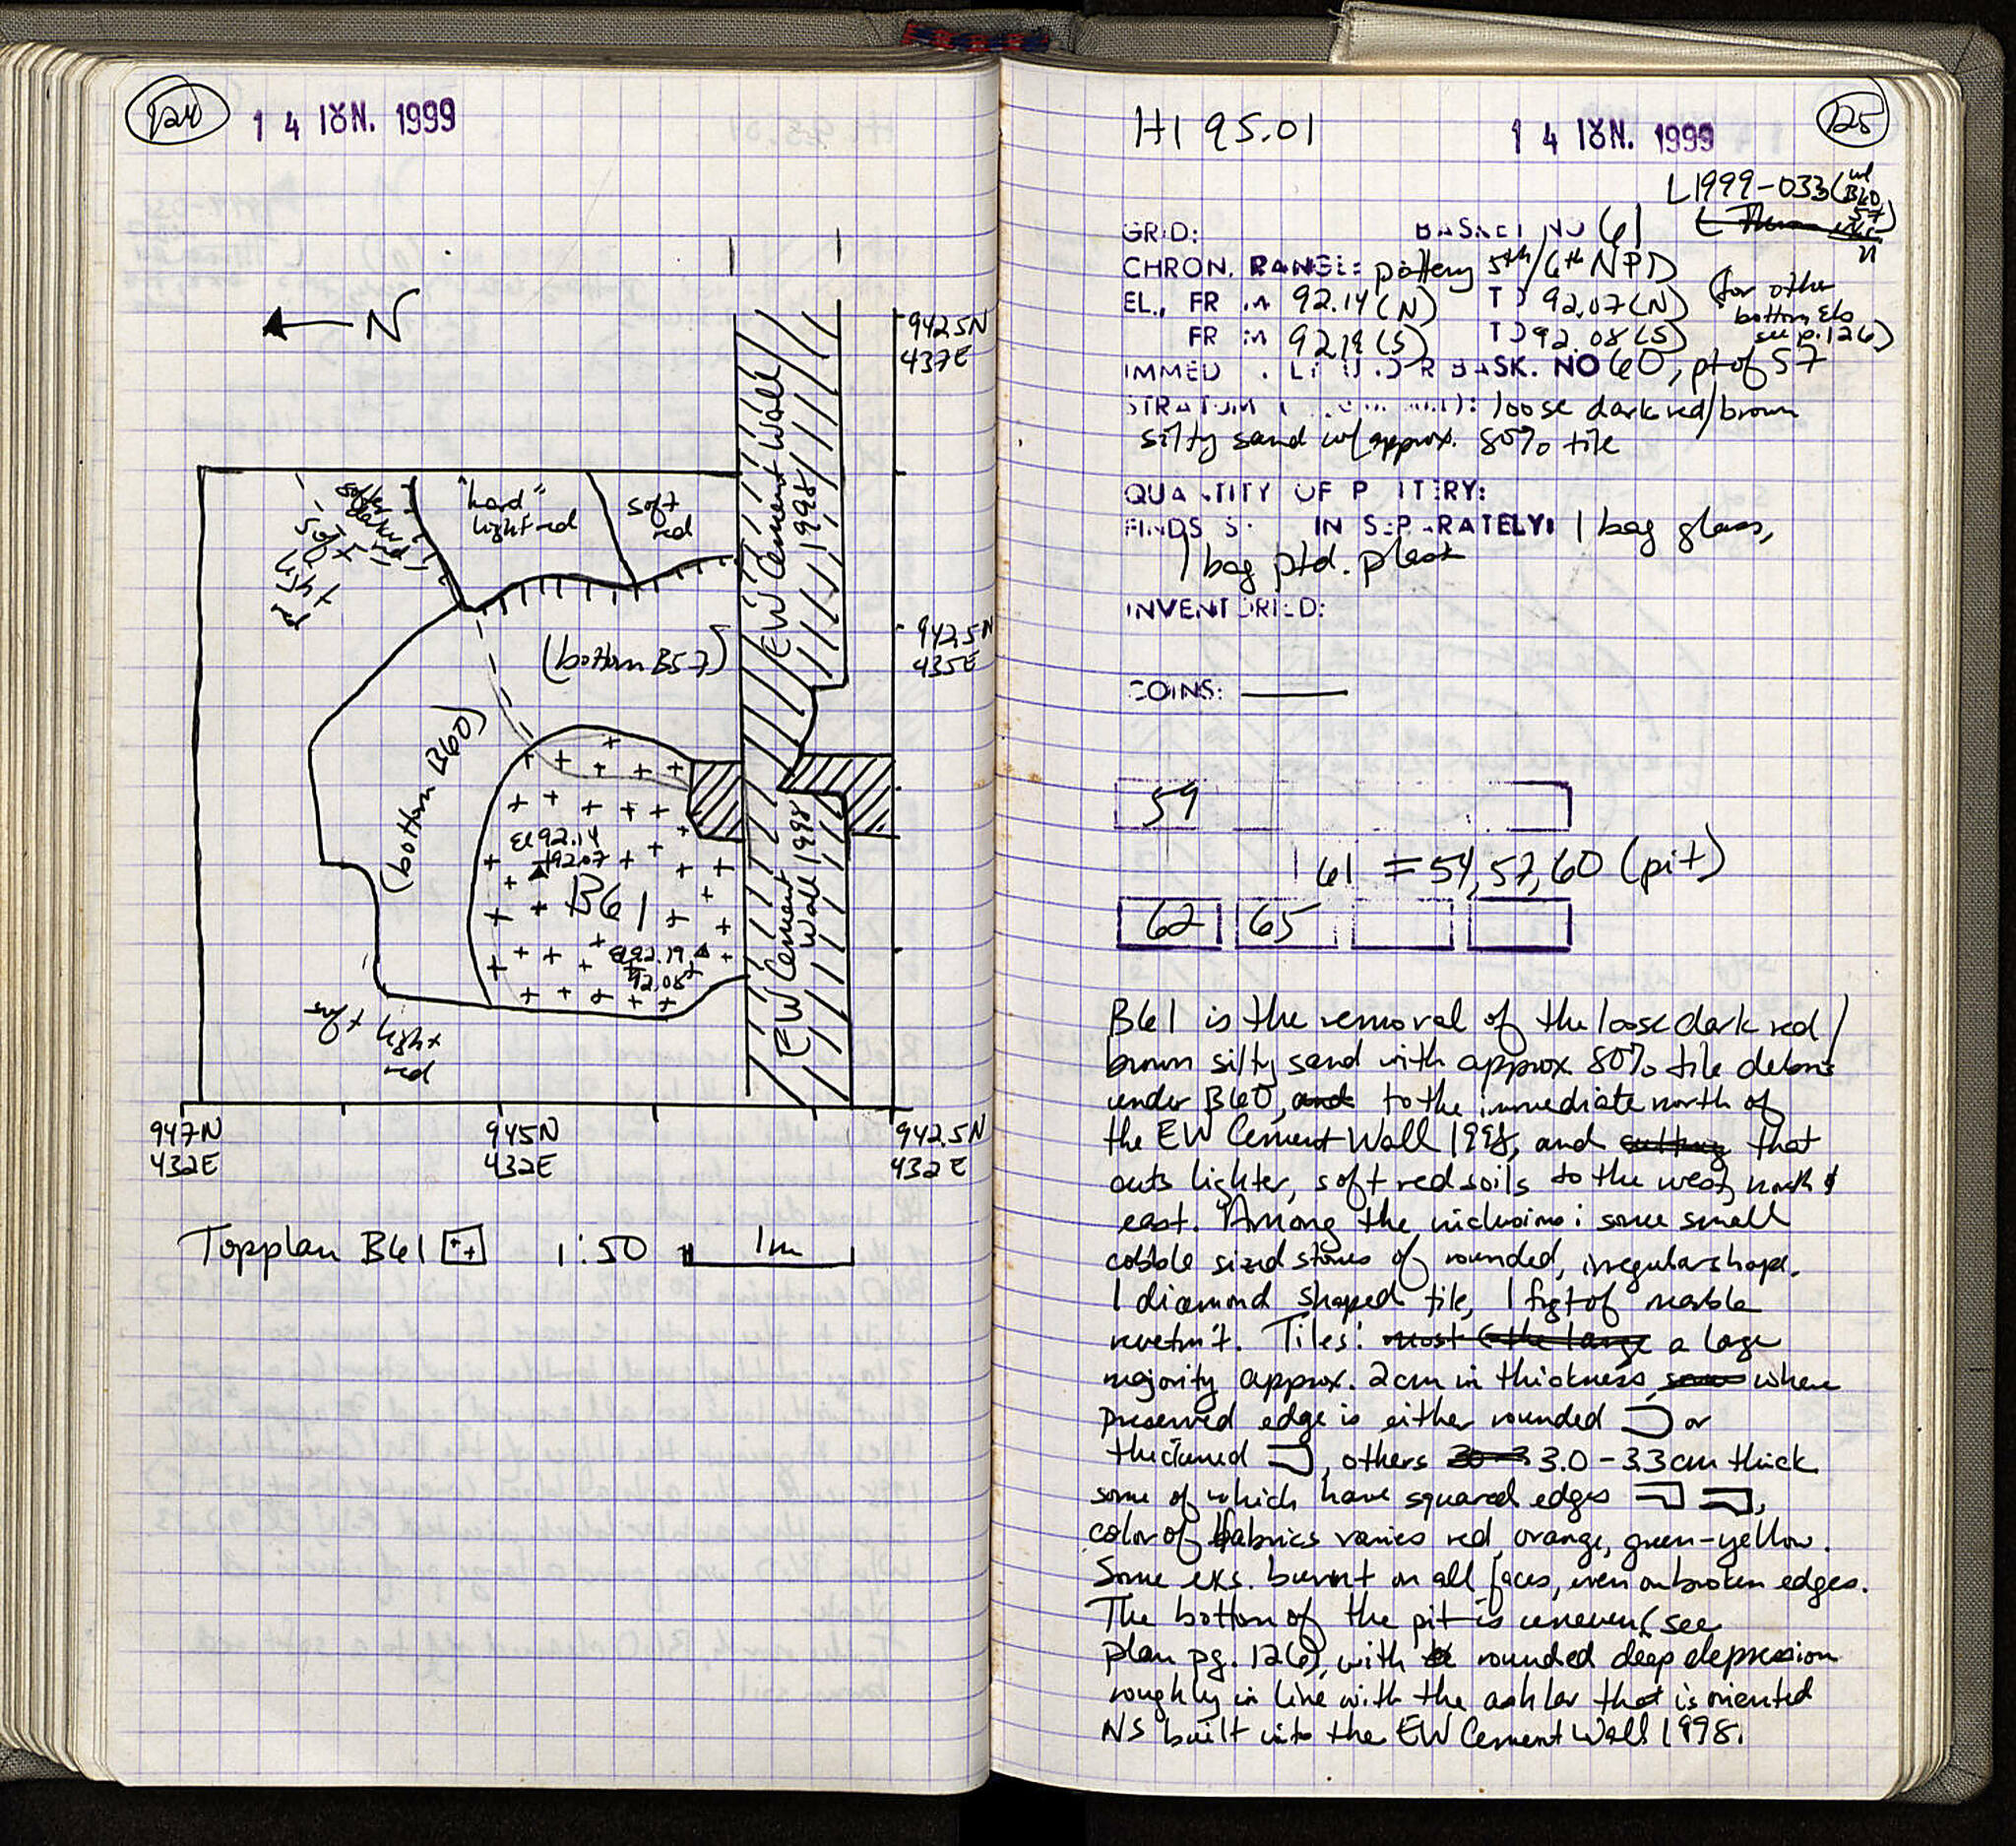 124
14 ΙΟΥΝ. 1999
N
942.5N
437E
EW Cement Wall 1998
softer
dark
red
soft
light
red
"hard"
light red
soft
red
942.5N
435E
(bottom B57)
(bottom B60)
El 92.14
92.07
B61
El 92.19
92.08
EW Cement
Wall 1998
soft light
red
947N
432E
945N
432E
942.5N
432E
Topplan B61 1:50 1m
125
H1 95.01
14 ΙΟΥΝ. 1999
L1999-033 (w/
B60,
57)
GRID: BASKET NO 61
CHRON. RANGE: pottery 5th/6th NPD
EL., FR m 92.14 (N) TO 92.07 (N) (for other
bottom els
see p. 126)
FR m 92.19 (S) TO 92.08 (S)
IMMED BASK. NO 60, pt of 57
STRATUM : loose dark red/brown
silty sand w/ approx. 80% tile
QUANTITY OF POTTERY:
FINDS IN SEPARATELY: 1 bag glass,
1 bag ptd. plast
INVENTORIED:
COINS: —
59
61 = 54, 57, 60 (pit)
62 65
B61 is the removal of the loose dark red/
brown silty sand with approx 80% tile debris
under B60, and to the immediate north of
the EW Cement Wall 1998, and cutting that
cuts lighter, soft red soils to the west, north &
east. Among the inclusions: some small
cobble sized stones of rounded, irregular shape.
1 diamond shaped tile, 1 fgt of marble
revetm't. Tiles: most (the large a large
majority approx. 2cm in thickness, some where
preserved edge is either rounded or
thickened , others 3.0 - 3.3cm thick
some of which have squared edges ,
color of fabrics varies red, orange, green-yellow.
Some exs. burnt on all faces, even on broken edges.
The bottom of the pit is uneven (see
plan pg. 126), with a rounded deep depression
roughly in line with the ashlar that is oriented
NS built into the EW Cement Wall 1998.